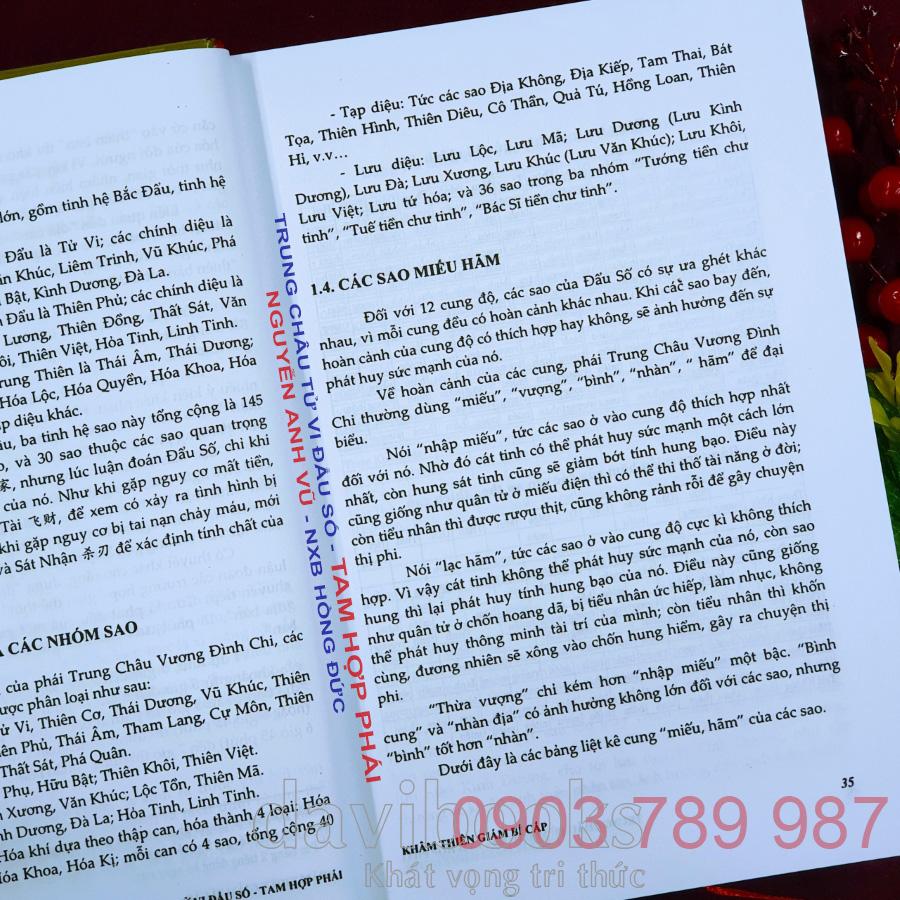 lớn, gồm tinh hệ Bắc Đẩu, tinh hệ
Đẩu là Tử Vi; các chính diệu là
Khúc, Liêm Trinh, Vũ Khúc, Phá
Bật, Kình Dương, Đà La.
Đẩu là Thiên Phủ; các chính diệu là
Lương, Thiên Đồng, Thất Sát, Văn
Thiên Việt, Hỏa Tinh, Linh Tinh.
Trung Thiên là Thái Âm, Thái Dương;
Hóa Lộc, Hóa Quyền, Hóa Khoa, Hóa
diệu khác.
ba tinh hệ sao này tổng cộng là 145
và 30 sao thuộc các sao quan trọng
nhưng lúc luận đoán Đẩu Số, chỉ khi
của nó. Như khi gặp nguy cơ mất tiền,
Tài 飞财, để xem có xảy ra tình hình bị
khi gặp nguy cơ bị tai nạn chảy máu, mới
và Sát Nhận 杀刃 để xác định tính chất của
CÁC NHÓM SAO
của phái Trung Châu Vương Đình Chi, các
được phân loại như sau:
Vi, Thiên Cơ, Thái Dương, Vũ Khúc, Thiên
Phủ, Thái Âm, Tham Lang, Cự Môn, Thiên
Thất Sát, Phá Quân.
Phụ, Hữu Bật; Thiên Khôi, Thiên Việt.
Xương, Văn Khúc; Lộc Tồn, Thiên Mã.
Dương, Đà La; Hỏa Tinh, Linh Tinh.
Hóa khí dựa theo thập can, hóa thành 4 loại: Hóa
Hóa Khoa, Hóa Kị; mỗi can có 4 sao, tổng cộng 40
VI ĐẨU SỐ - TAM HỢP PHÁI
TRUNG CHÂU TỬ VI ĐẨU SỐ - TAM HỢP PHÁI
NGUYỄN ANH VŨ - NXB HỒNG ĐỨC
- Tạp diệu: Tức các sao Địa Không, Địa Kiếp, Tam Thai, Bát
Tọa, Thiên Hình, Thiên Diêu, Cô Thần, Quả Tú, Hồng Loan, Thiên
Hi, v.v...
- Lưu diệu: Lưu Lộc, Lưu Mã; Lưu Dương (Lưu Kình
Dương), Lưu Đà; Lưu Xương, Lưu Khúc (Lưu Văn Khúc); Lưu Khôi,
Lưu Việt; Lưu tứ hóa; và 36 sao trong ba nhóm “Tướng tiền chư
tinh”, “Tuế tiền chư tinh”, “Bác Sĩ tiền chư tinh”.
1.4. CÁC SAO MIẾU HÃM
Đối với 12 cung độ, các sao của Đẩu Số có sự ưa ghét khác
nhau, vì mỗi cung đều có hoàn cảnh khác nhau. Khi các sao bay đến,
hoàn cảnh của cung độ có thích hợp hay không, sẽ ảnh hưởng đến sự
phát huy sức mạnh của nó.
Về hoàn cảnh của các cung, phái Trung Châu Vương Đình
Chi thường dùng “miếu”, “vượng”, “bình”, “nhàn”, “ hãm” để đại
biểu.
Nói “nhập miếu”, tức các sao ở vào cung độ thích hợp nhất
đối với nó. Nhờ đó cát tinh có thể phát huy sức mạnh một cách lớn
nhất, còn hung sát tinh cũng sẽ giảm bớt tính hung bạo. Điều này
cũng giống như quân tử ở miếu điện thì có thể thi thố tài năng ở đời;
còn tiểu nhân thì được rượu thịt, cũng không rảnh rỗi để gây chuyện
thị phi.
Nói “lạc hãm”, tức các sao ở vào cung độ cực kì không thích
hợp. Vì vậy cát tinh không thể phát huy sức mạnh của nó, còn sao
hung thì lại phát huy tính hung bạo của nó. Điều này cũng giống
như quân tử ở chốn hoang dã, bị tiểu nhân ức hiếp, làm nhục, không
thể phát huy thông minh tài trí của mình; còn tiểu nhân thì khốn
cùng, đương nhiên sẽ xông vào chốn hung hiểm, gây ra chuyện thị
phi.
“Thừa vượng” chỉ kém hơn “nhập miếu” một bậc. “Bình
cung” và “nhàn địa” có ảnh hưởng không lớn đối với các sao, nhưng
“bình” tốt hơn “nhàn”.
Dưới đây là các bảng liệt kê cung “miếu, hãm” của các sao.
35
KHÂM THIÊN GIÁM BÍ CÁP
davibooks
0903 789 987
Khát vọng tri thức